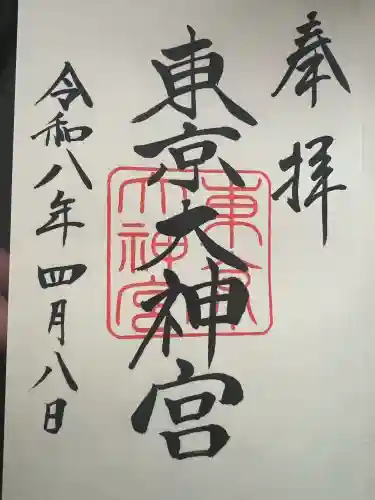 奉拝
東京大神宮
東京
大神宮
令和八年四月八日